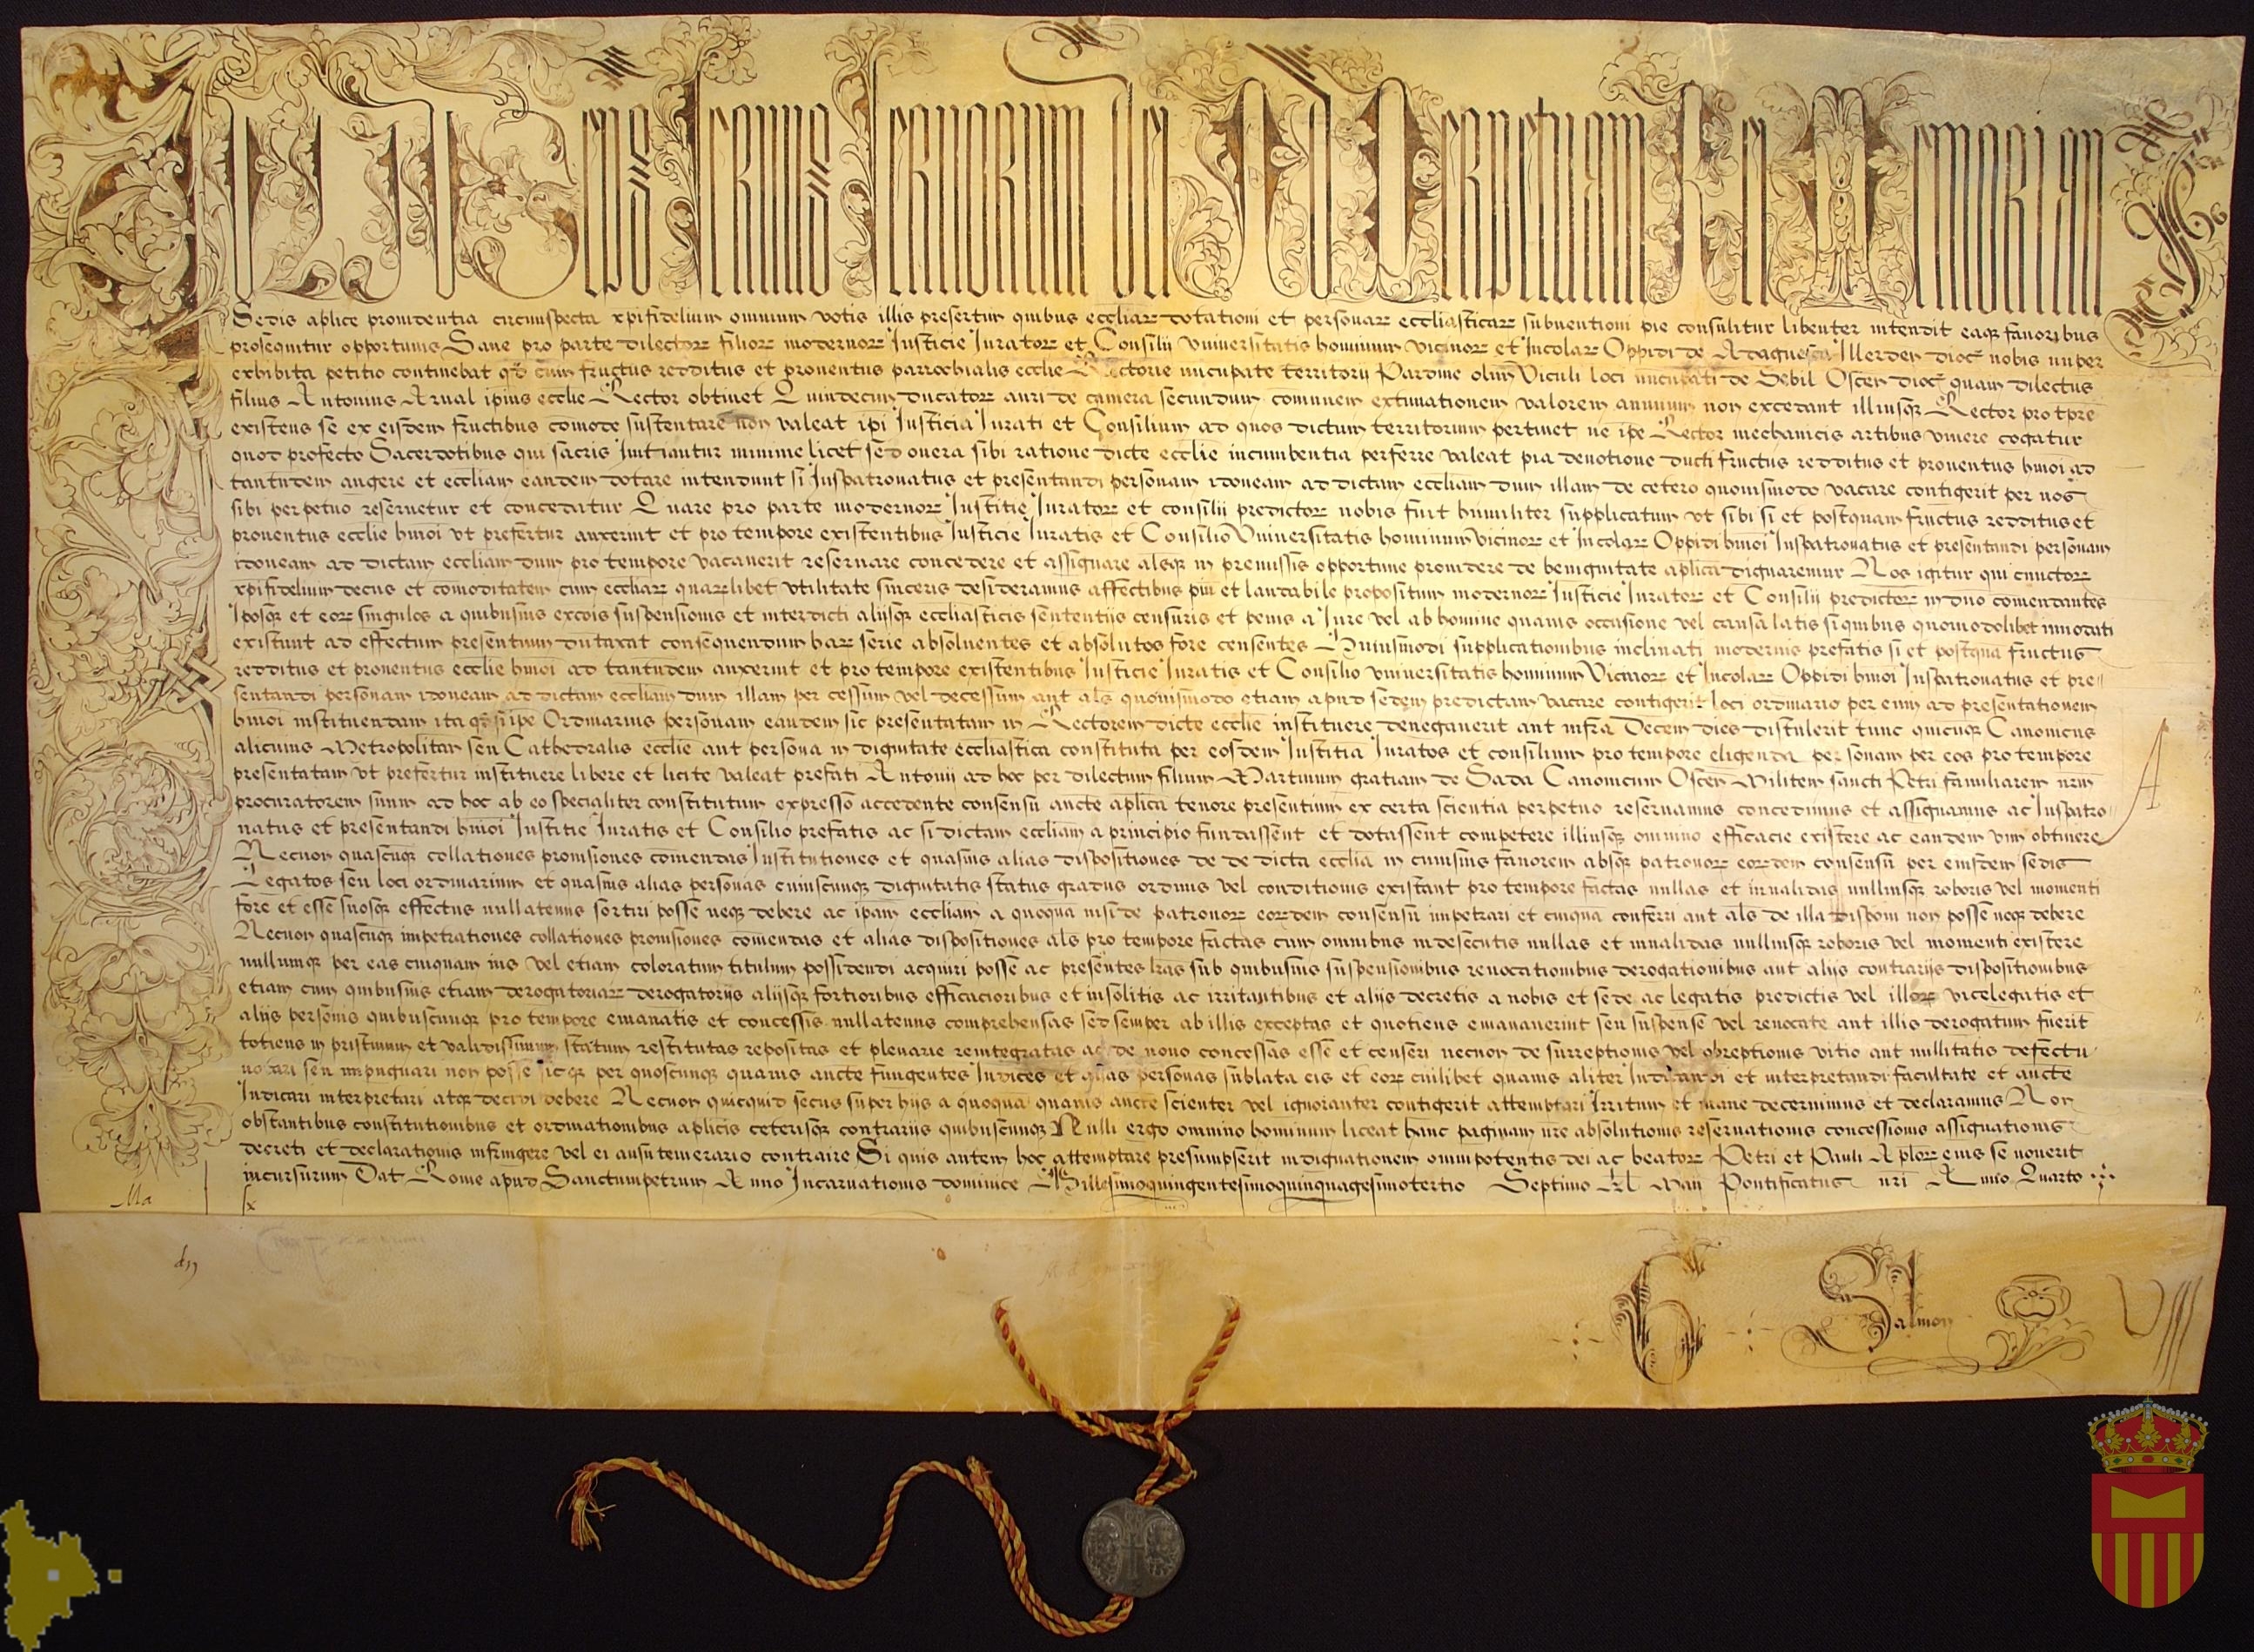 IULIUS eps Seruus Seruorum dei AD Perpetuam Rei Memoriam
Sedis aplice prouidentia circumspecta xpifidelium omnium votis illis presertim quibus eccliar dotationi et personar eccliasticar subuentioni pie consulitur libenter intendit eaque fauoribus
prosequitur opportunis Sane pro parte dilector filior modernor Iusticie Iurator et Consilii Vniuersitatis hominum vicinor et Incolar Oppidi de Illerden dioc nobis nuper
exhibita petitio continebat qd cum fructus redditus et prouentus parrochialis ecclie Rectorie nuncupate territorii Pardine olim Viculi loci nuncupati de Sebil Oscen dioc quam dilectus
filius Antonius Arnal ipsius ecclie Rector obtinet Quindecim ducator auri de camera secundum comunem extimationem valorem annuum non excedant illiusque Rector pro tpre
existens se ex eisdem fructibus comode sustentare non valeat ipi Iusticia Iurati et Consilium ad quos dictum territorium pertinet ne ipe Rector mechanicis artibus viuere cogatur
quod profecto Sacerdotibus qui sacris Initiantur minime licet sed onera sibi ratione dicte ecclie incumbentia perferre valeat pia deuotione ducti fructus redditus et prouentus hmoi ad
tantundem augere et eccliam eandem dotare intendunt si Iuspatronatus et presentandi personam idoneam ad dictam eccliam dum illam de cetero quouismodo vacare contigerit per nos
sibi perpetuo reseruetur et concedatur Quare pro parte modernor Iustitie Iurator et consilii predictor nobis fuit humiliter supplicatum vt sibi si et postquam fructus redditus et
prouentus ecclie hmoi vt prefertur auxerint et pro tempore existentibus Iusticie Iuratis et Consilio Vniuersitatis hominum Vicinor et Incolar Oppidi hmoi Iuspatronatus et presentandi personam
idoneam ad dictam eccliam dum pro tempore vacauerit reseruare concedere et assignare alsque in premissis opportune prouidere de benignitate aplica dignaremur Nos igitur qui cunctor
xpifidelium decus et comoditatem cum eccliar quarlibet vtilitate sinceris desideramus affectibus pium et laudabile propositum modernor Iusticie Iurator et Consilii predictor in dno comendantes
Iposque et eor singulos a quibusuis excois suspensionis et interdicti aliisque eccliasticis sententiis censuris et penis a Iure vel ab homine quauis occasione vel causa latis si quibus quomodolibet innodati
existunt ad effectum presentium dutaxat consequendum har serie absoluentes et absolutos fore censentes Huiusmodi supplicationibus inclinati modernis prefatis si et postqua fructus
redditus et prouentus ecclie hmoi ad tantundem auxerint et pro tempore existentibus Iusticie Iuratis et Consilio vniuersitatis hominum Vicinor et Incolar Oppidi hmoi Iuspatronatus et pre
sentandi personam idoneam ad dictam eccliam dum illam per cessum vel decessum aut als quouismodo etiam apud sedem predictam vacare contigerit loci ordinario per eum ad presentationem
hmoi instituendam ita qd si ipe Ordinarius personam eandem sic presentatam in Rectorem dicte ecclie instituere denegauerit aut infra Decem dies distulerit tunc quicunque Canonicus
alicuius Metropolitan seu Cathedralis ecclie aut persona in dignitate eccliastica constituta per eosdem Iustitia Iuratos et consilium pro tempore eligenda personam per eos pro tempore
presentatam vt prefertur instituere libere et licite valeat prefati Antonii ad hoc per dilectum filium Martinum gratiam de Sada Canonicum Oscen Militem sancti Petri familiarem nrm
procuratorem suum ad hoc ab eo specialiter constitutum expresso accedente consensu aucte aplica tenore presentium ex certa scientia perpetuo reseruamus concedimus et assignamus ac Iuspatro
natus et presentandi hmoi Iustitie Iuratis et Consilio prefatis ac si dictam eccliam a principio fundassent et dotassent competere illiusque omnino efficacie existere ac eandem vim obtinere
Necnon quascunque collationes prouisiones comendas Institutiones et quasuis alias dispositiones de de dicta ecclia in cuiusuis fauorem absque patronor eordem consensu per eiusdem sedis
Legatos seu loci ordinarium et quasuis alias personas cuiuscunque dignitatis status gradus ordinis vel conditionis existant pro tempore factas nullas et inualidas nulliusque roboris vel momenti
fore et esse suosque effectus nullatenus sortiri posse neque debere ac ipam eccliam a quoqua nisi de patronor eordem consensu impetrari et cuiqua conferri aut als de illa disponi non posse neque debere
Necnon quascunque impetrationes collationes prouisiones comendas et alias dispositiones als pro tempore factas cum omnibus inde secutis nullas et inualidas nulliusque roboris vel momenti existere
nullumque per eas cuiquam ius vel etiam coloratum titulum possidendi acquiri posse ac presentes lras sub quibusuis suspensionibus reuocationibus derogationibus aut aliis contrariis dispositionibus
etiam cum quibusuis etiam derogatoriar derogatoriis aliisque fortioribus efficacioribus et insolitis ac irritantibus et aliis decretis a nobis et sede ac legatis predictis vel illor vicelegatis et
aliis personis quibuscunque pro tempore emanatis et concessis nullatenus comprehensas sed semper ab illis exceptas et quotiens emanauerint seu suspense vel reuocate aut illis derogatum fuerit
totiens in pristinum et validissimum statum restitutas repositas et plenarie reintegratas ac de nouo concessas esse et censeri necnon de surreptionis vel obreptionis vitio aut nullitatis defectu
notari seu impugnari non posse sicque per quoscunque quauis aucte fungentes Iudices et alias personas sublata eis et eor cuilibet quauis aliter Iudicandi et interpretandi facultate et aucte
Iudicari interpretari atque decidi debere Necnon quicquid secus super hiis a quoqua quauis aucte scienter vel ignoranter contigerit attemptari Irritum et inane decernimus et declaramus Non
obstantibus constitutionibus et ordinationibus aplicis ceterisque contrariis quibuscunque Nulli ergo omnino hominum liceat hanc paginam nre absolutionis reseruationis concessionis assignationis
decreti et declarationis infringere vel ei ausu temerario contraire Si quis autem hoc attemptare presumpserit indignationem omnipotentis dei ac beator Petri et Pauli Aplor eius se nouerit
incursurum Dat Rome apud Sanctumpetrum Anno Incarnationis dominice Millesimoquingentesimoquinquagesimotertio Septimo kl Maii Pontificatus nri Anno Quarto
A
Salmon